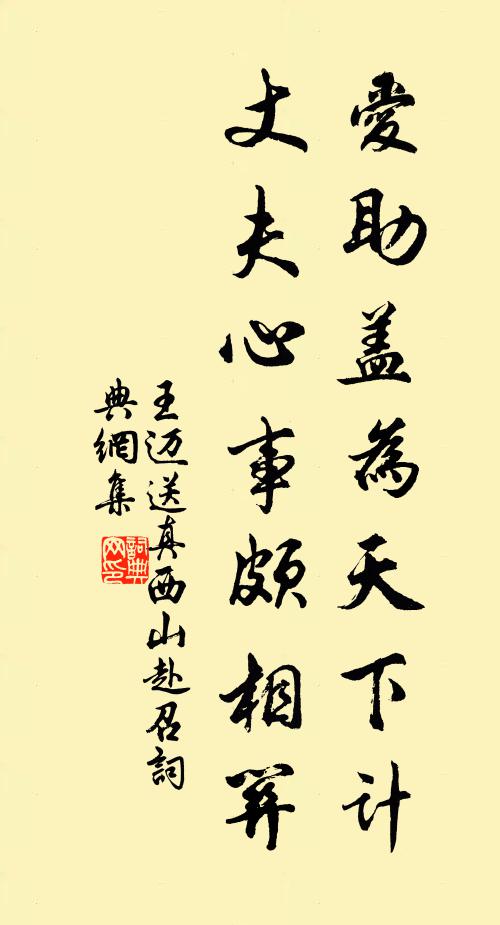 愛助盖為天下計
丈夫心事頗相
王迈送真西山赴召詞
典網集
詞典
网印